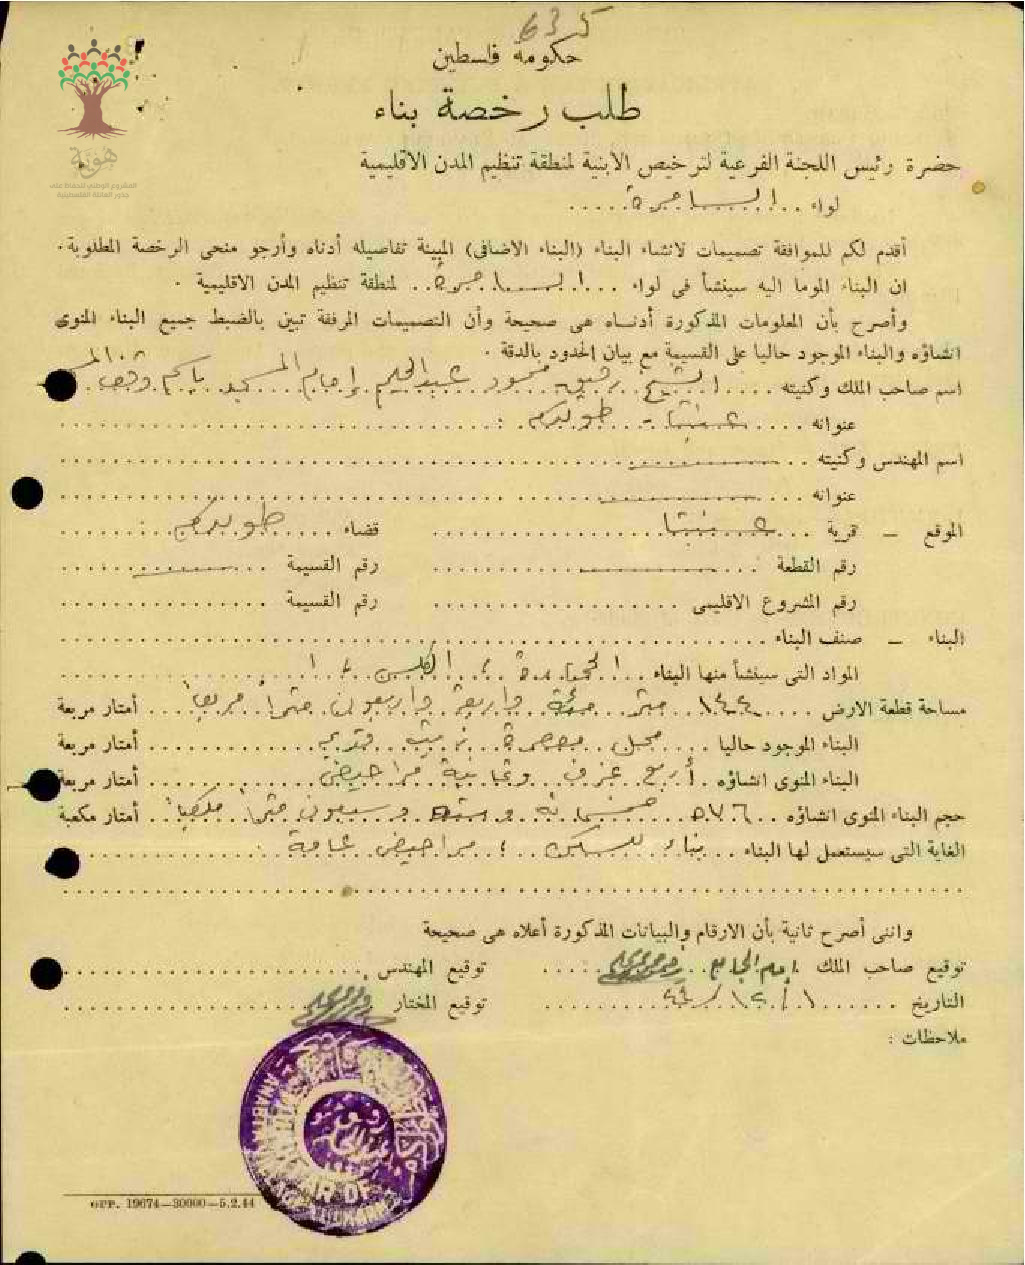 635
حكومة فلسطين
طلب رخصة بناء
هوية
المشروع الوطني للحفاظ على
جذور العائلة الفلسطينية
حضرة رئيس اللجنة الفرعية لترخيص الابنية لمنطقة تنظيم المدن الاقليمية
لواء . . السامرة . . . . .
أقدم لكم للموافقة تصميمات لانشاء البناء (البناء الاضافى) المبينة تفاصيله أدناه وأرجو منحى الرخصة المطلوبة .
ان البناء الموما اليه سينشأ فى لواء . . . السامرة . . لمنطقة تنظيم المدن الاقليمية .
وأصرح بأن المعلومات المذكورة أدناه هى صحيحة وأن التصميمات المرفقة تبين بالضبط جميع البناء المنوى
انشاؤه والبناء الموجود حاليا على القسيمة مع بيان الحدود بالدقة .
اسم صاحب الملك وكنيته . . . . الشيخ رفيق محمود عبد الحليم إمام المسجد باسم وقف
عنوانه . . . . عنبتا - طولكرم
اسم المهندس وكنيته . .
عنوانه . . . .
الموقع — قرية . . . عنبتا . . . . قضاء . . . . طولكرم
رقم القطعة . . . رقم القسيمة . . .
رقم المشروع الاقليمى . . . . رقم القسيمة . . . .
البناء — صنف البناء . . . .
المواد التى سينشأ منها البناء . . الحجارة ؛ الكلس
مساحة قطعة الارض . . . . ١٤٤ متر مئة واربعة واربعون مترا مربعا . . . أمتار مربعة
البناء الموجود حاليا . . . . محل معصرة زيت قديم . . . . أمتار مربعة
البناء المنوى انشاؤه . أربع غرف وثمانية مراحيض . . . . أمتار مربعة
حجم البناء المنوى انشاؤه . . ٥٧٦ خمسمائة وستة وسبعون مترا مكعبا . . أمتار مكعبة
الغاية التى سيستعمل لها البناء . . بناء للسكن ؛ مراحيض عامة
واننى أصرح ثانية بأن الارقام والبيانات المذكورة أعلاه هى صحيحة
توقيع صاحب الملك . إمام الجامع . . . . توقيع المهندس . . . .
التاريخ . . . . ١/١٢/٤٤ . . . . توقيع المختار . . . .
ملاحظات :
GPP. 19674—30000—5.2.44